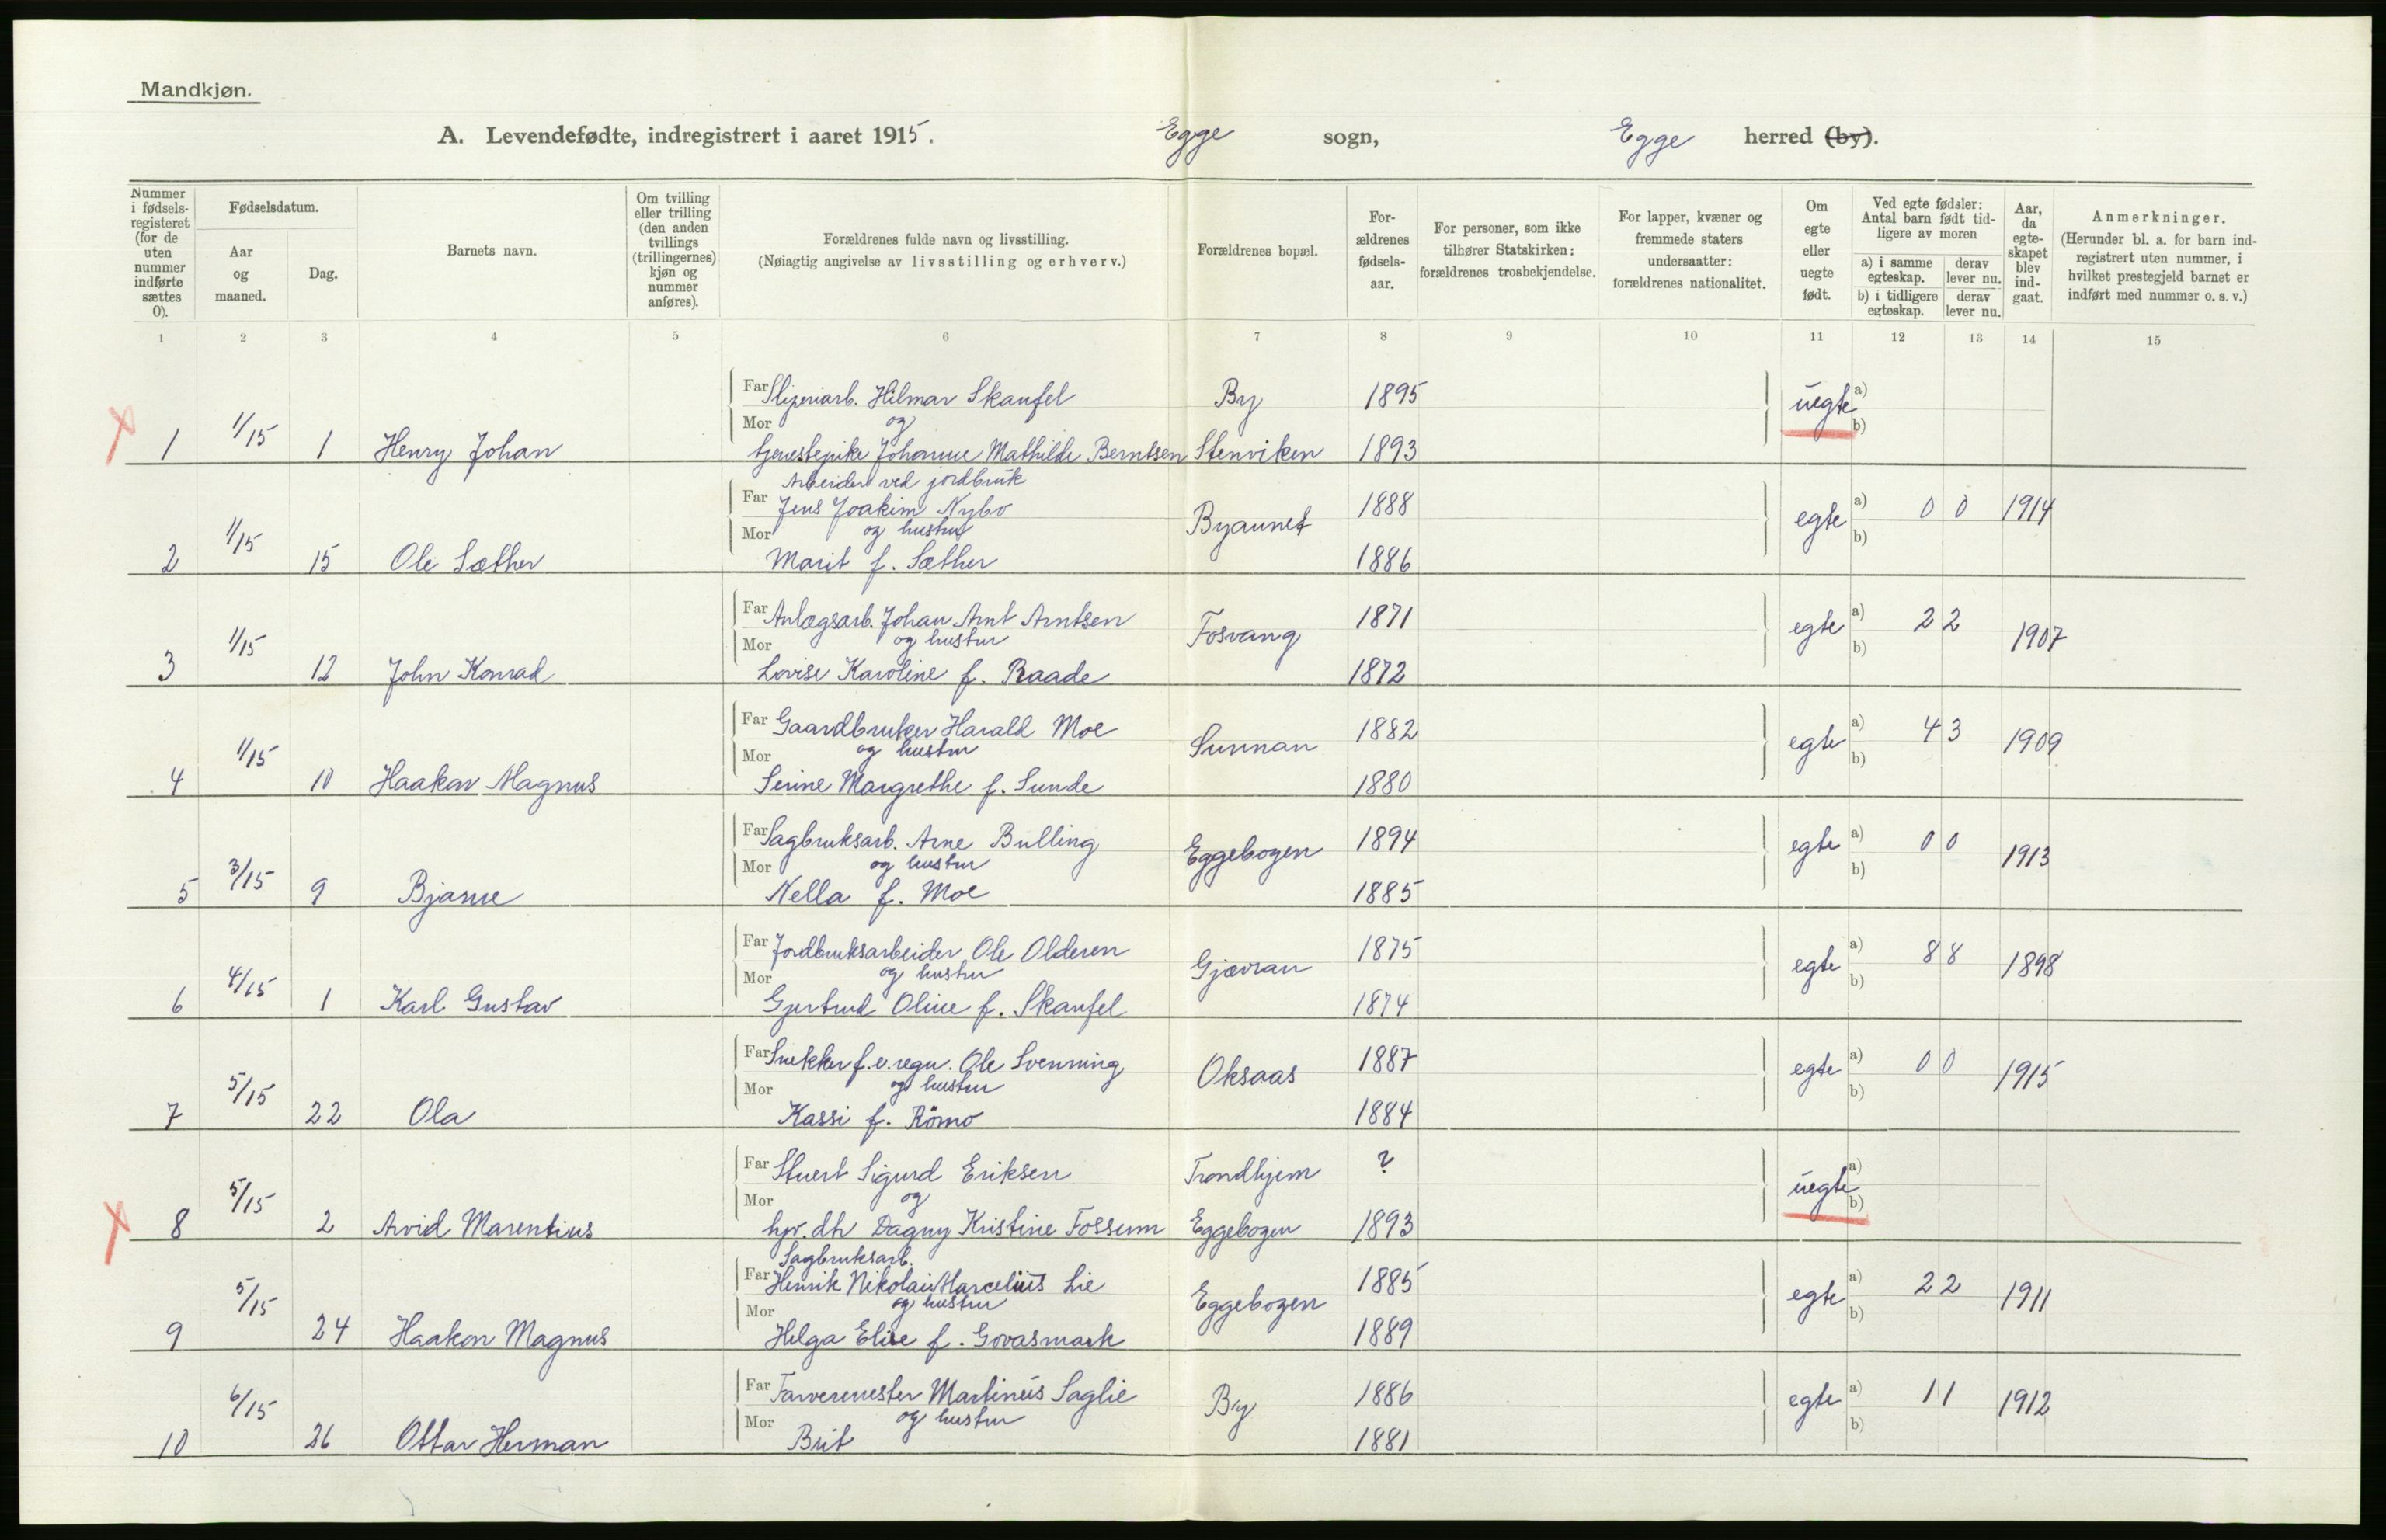 Mandkjøn.
A. Levendefødte, indregistrert i aaret 1915. Egge sogn, Egge herred (by).
Nummer i fødselsregisteret (for de uten nummer indførte sættes 0).
Fødselsdatum.
Aar og maaned.
Dag.
Barnets navn.
Om tvilling eller trilling (den anden tvillings (trillingernes) kjøn og nummer anføres).
Forældrenes fulde navn og livsstilling.
(Nøiagtig angivelse av livsstilling og erhverv.)
Forældrenes bopæl.
Forældrenes fødselsaar.
For personer, som ikke tilhører Statskirken: forældrenes trosbekjendelse.
For lapper, kvæner og fremmede staters undersaatter: forældrenes nationalitet.
Om egte eller uegte født.
Ved egte fødsler: Antal barn født tidligere av moren
a) i samme egteskap. derav lever nu.
b) i tidligere egteskap. derav lever nu.
Aar, da egteskapet blev indgaat.
Anmerkninger.
(Herunder bl. a. for barn indregistrert uten nummer, i hvilket prestegjeld barnet er indført med nummer o. s. v.)
1 2 3 4 5 6 7 8 9 10 11 12 13 14 15
Far Sliperiarb. Hilmar Skaufel By 1895 uegte a)
Mor og b)
1 1/15 1 Henry Johan tjenestepike Johanne Mathilde Berntsen Stenviken 1893
Arbeider ved jordbruk
Far Jens Joakim Nybo Byaunet 1888 egte a) 0 0 1914
Mor og hustru b)
2 1/15 15 Ole Sæther Marit f. Sæther 1886
Far Anlægsarb. Johan Arnt Arntsen Fosvang 1871 egte a) 2 2 1907
Mor og hustru b)
3 1/15 12 John Konrad Lovise Karoline f. Raade 1872
Far Gaardbruker Harald Moe Sunnan 1882 egte a) 4 3 1909
Mor og hustru b)
4 1/15 10 Haakon Magnus Serine Margrethe f. Sunde 1880
Far Sagbruksarb. Arne Bulling Eggebogen 1894 egte a) 0 0 1913
Mor og hustru b)
5 3/15 9 Bjarne Nella f. Moe 1885
Far Jordbruksarbeider Ole Olderen Gjævran 1875 egte a) 8 8 1898
Mor og hustru b)
6 4/15 1 Karl Gustav Gjertrud Oline f. Skaufel 1874
Far Snekker f.e.regn. Ole Svenning Oksaas 1887 egte a) 0 0 1915
Mor og hustru b)
7 5/15 22 Ola Kassi f. Römo 1884
Far Stuert Sigurd Eriksen Trondhjem ? uegte a)
Mor og b)
8 5/15 2 Arvid Marentius hjv. dtr Dagny Kristine Fossum Eggebogen 1893
Sagbruksarb.
Far Henrik Nikolai Marcelius Lie Eggebogen 1885 egte a) 2 2 1911
Mor og hustru b)
9 5/15 24 Haakon Magnus Helga Elise f. Govasmark 1889
Far Farvermester Martinus Saglie By 1886 egte a) 1 1 1912
Mor og hustru b)
10 6/15 26 Ottar Herman Brit 1881